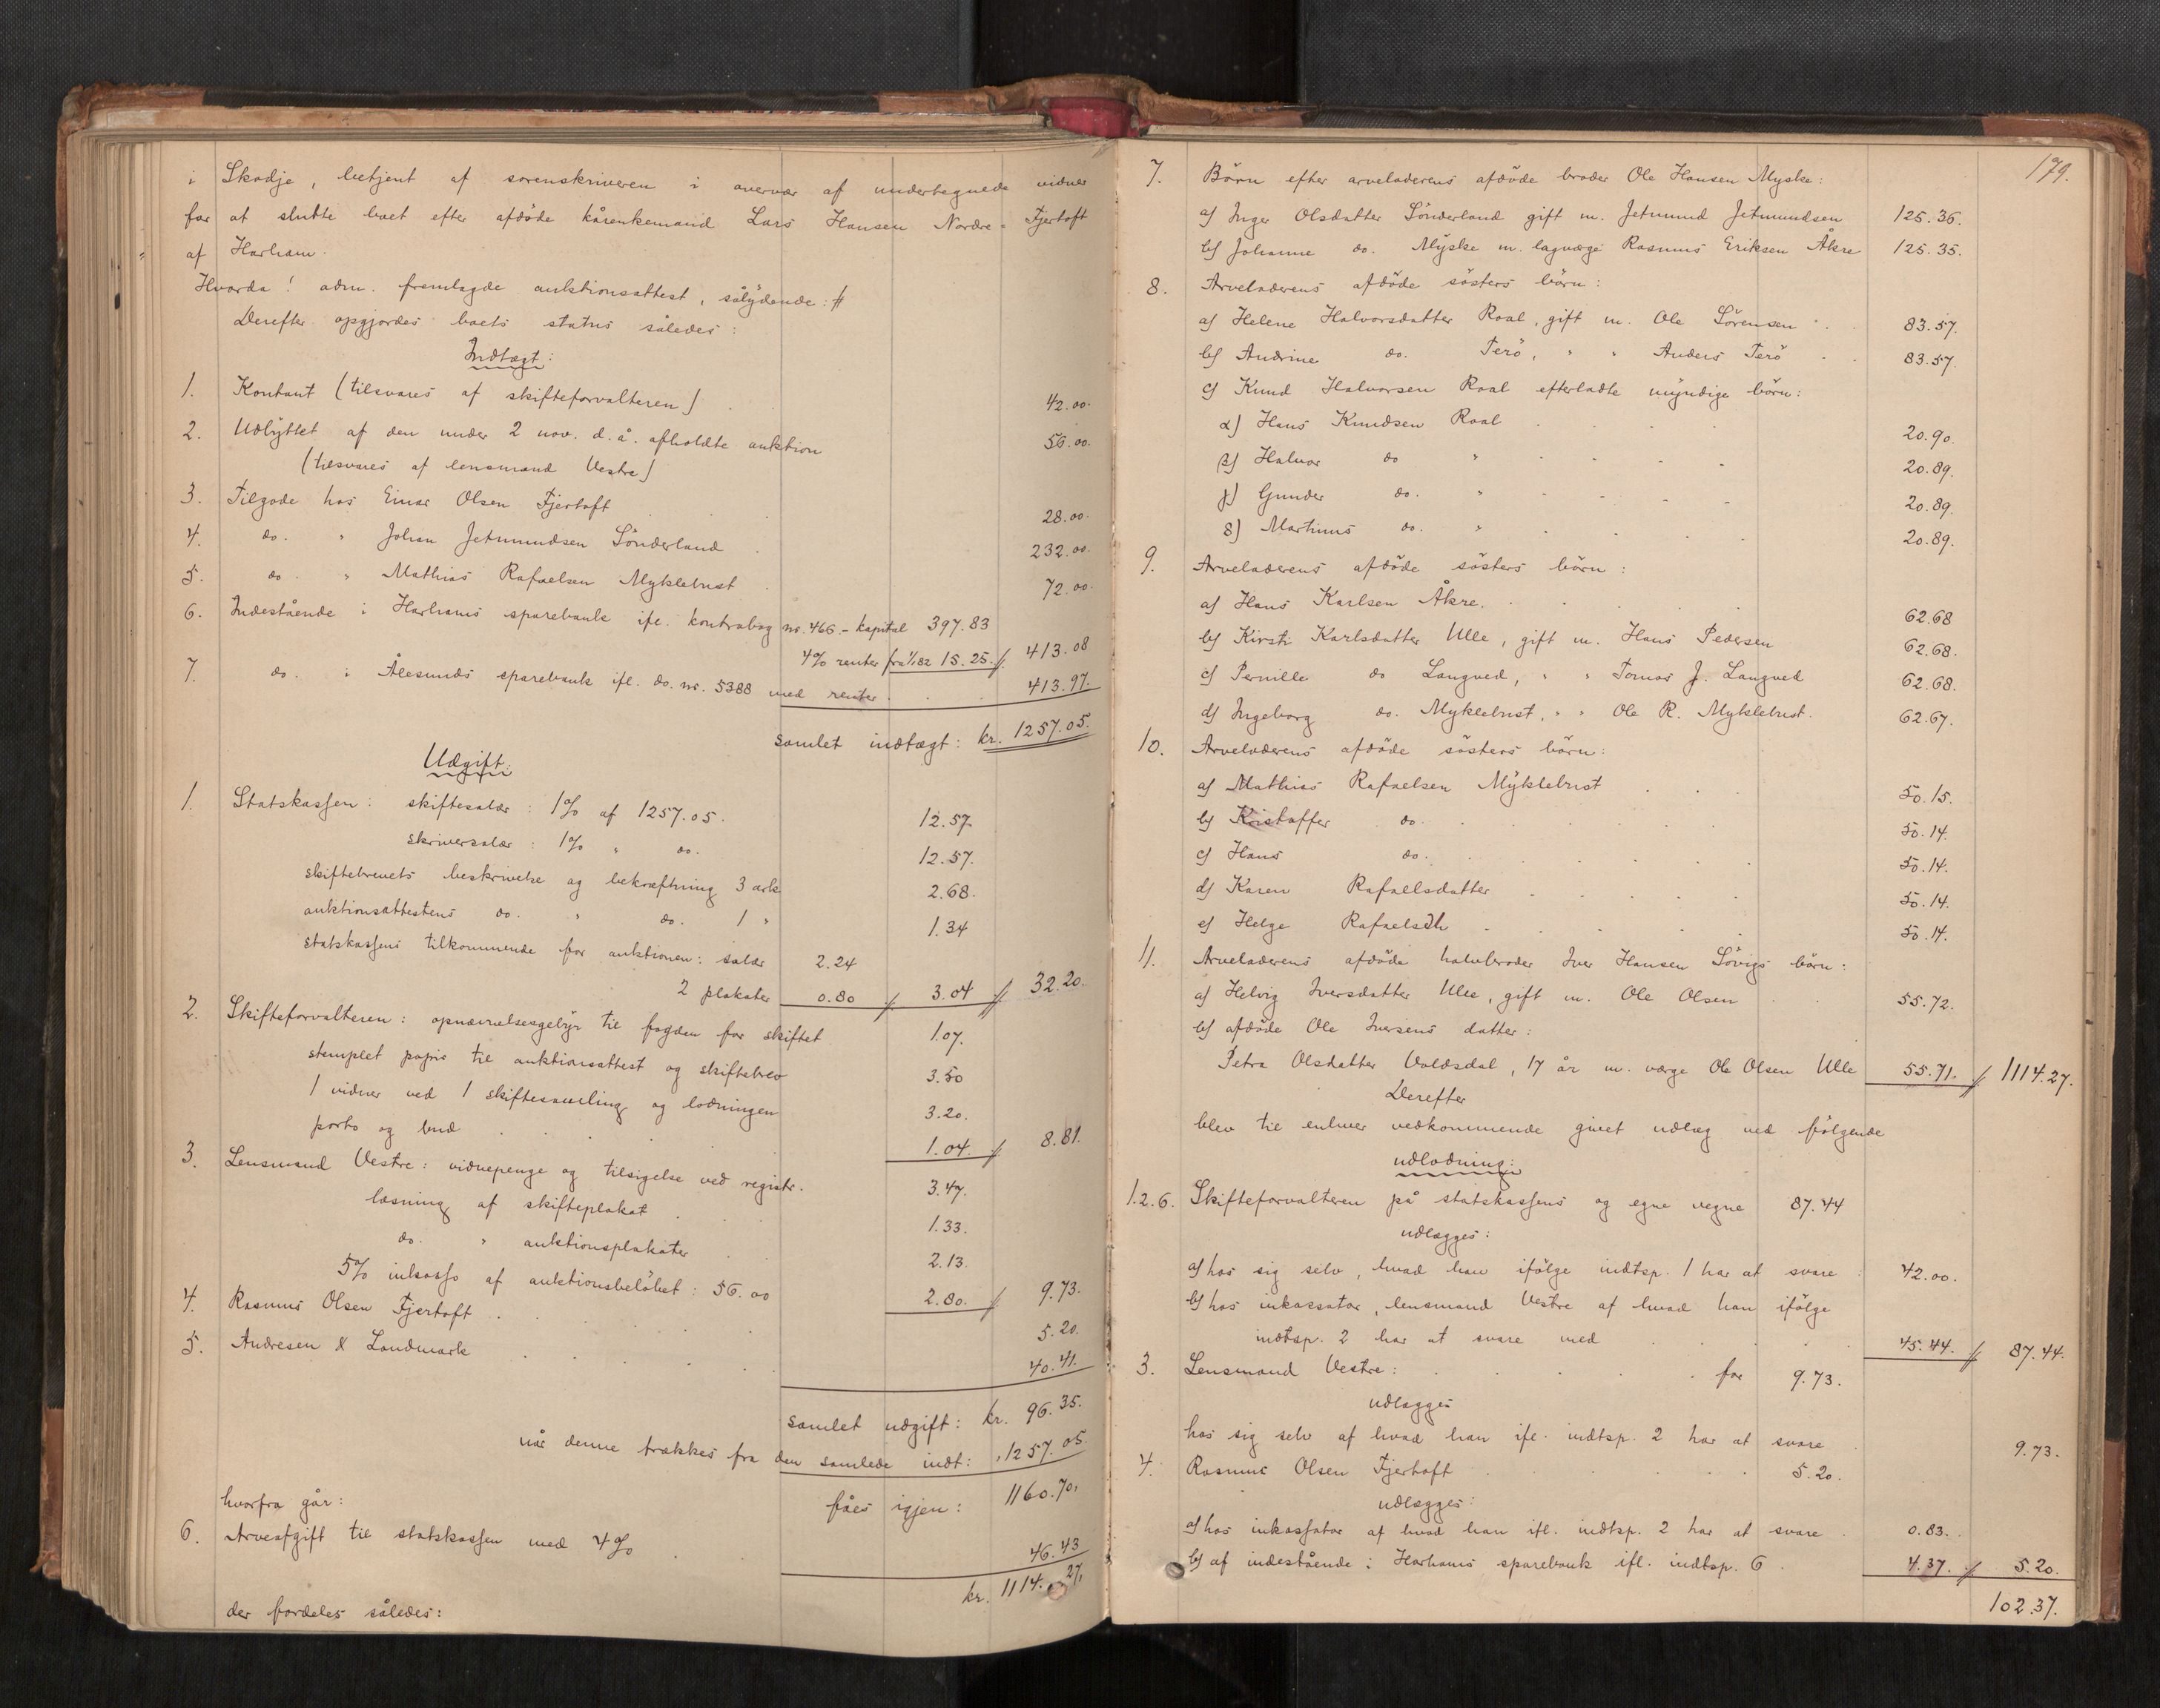 i Skodje, betjent af sorenskriveren i overvær af undertegnede vidner
for at slutte boet efter afdöde kårenkemand Lars Hansen Nordre-Fjertoft
af Harham.
Hvorda! adm. fremlagde auktionsattest, sålydende: #
Derefter opgjordes boets status således:
Indtægt:
1. Kontant (tilsvares af skifteforvalteren) . 42.00.
2. Udbyttet af den under 2 nov. d. å. afholdte auktion 56.00.
(tilsvares af lensmand Vestre)
3. Tilgode hos Einar Olsen Fjertoft . . . 28.00.
4. do. " Johan Jetmundsen Sönderland . 232.00.
5. do. " Mathias Rafaelsen Myklebust . 72.00.
6. Indestående i Harhams sparebank ifl. kontrabog nr. 466. - kapital 397.83
4% renter fra 1/1 82 15.25. // 413.08
7. do. i Ålesunds sparebank ifl. do. nr. 5388 med renter . . . 413.97.
samlet indtægt: kr. 1257.05.
Udgift:
1. Statskassen: skiftesalær: 1% af 1257.05. 12.57
skriversalær: 1% " do. 12.57.
skiftebrevets beskrivelse og bekræftning 3 ark 2.68.
auktionsattestens do. " do. 1 " 1.34
statskassens tilkommende for auktionen: salær 2.24
2 plakater 0.80 // 3.04 // 32.20.
2. Skifteforvalteren: opnævnelsesgebyr til fogden for skiftet 1.07.
stemplet papir til auktionsattest og skiftebrev 3.50
1 vidner ved 1 skiftesamling og lodningen 3.20.
porto og bud . . . . . 1.04. // 8.81.
3. Lensmand Vestre: vidnepenge og tilsigelse ved registr. 3.47.
læsning af skifteplakat . . . 1.33.
do. " auktionsplakater . 2.13.
5% inkasso af auktionsbelöbet: 56.00 2.80. // 9.73.
4. Rasmus Olsen Fjertoft . . . . . 5.20.
5. Andresen & Landmark . . . . . 40.41.
samlet udgift: kr. 96.35.
når denne trækkes fra den samlede indt: " 1257.05
fåes igjen: 1160.70,
hvorfra går:
6. Arveafgift til statskassen med 4% . 46.43
kr. 1114.27,
der fordeles således:
179.
7. Börn efter arveladerens afdöde broder Ole Hansen Myske:
a) Inger Olsdatter Sönderland gift m. Jetmund Jetmundsen 125.36.
b) Johanne do. Myske m. lagværge Rasmus Eriksen Åkre 125.35.
8. Arveladerens afdöde sösters börn:
a) Helene Halvorsdatter Roal, gift m. Ole Sörensen . . 83.57.
b) Andrine do. Terö, " " Anders Terö . . 83.57.
c) Knud Halvorsen Roal efterladte myndige börn:
α) Hans Knudsen Roal . . . . 20.90.
β) Halvor do " . . . . 20.89.
γ) Gunder do. " . . . . 20.89.
δ) Martinus do. " . . . . 20.89.
9. Arveladerens afdöde sösters börn:
a) Hans Karlsen Åkre. . . . . . 62.68
b) Kirsti Karlsdatter Ulle, gift m. Hans Pedersen 62.68.
c) Pernille do Langved, " " Tomas J. Langved 62.68.
d) Ingeborg do. Myklebust, " " Ole R. Myklebust. 62.67.
10. Arveladerens afdöde sösters börn:
a) Mathias Rafaelsen Myklebust . . . 50.15.
b) Kristoffer do. . . . . . 50.14.
c) Hans do. . . . . . 50.14.
d) Karen Rafaelsdatter . . . . 50.14.
e) Helge Rafaelsdtr . . . . 50.14.
11. Arveladerens afdöde halvbroder Iver Hansen Sövigs börn:
a) Helvig Iversdatter Ulle, gift m. Ole Olsen . . 55.72.
b) afdöde Ole Iversens datter:
Petra Olsdatter Voldsdal, 17 år m. værge Ole Olsen Ulle 55.71. // 1114.27.
Derefter
blev til enhver vedkommende givet udlæg ved fölgende
udlodning:
1.2.6. Skifteforvalteren på statskassens og egne vegne 87.44
udlægges:
a) hos sig selv, hvad han ifölge indtsp. 1 har at svare : 42.00.
b) hos inkassator, lensmand Vestre af hvad han ifölge
indtsp. 2 har at svare med . . . 45.44. // 87.44.
3. Lensmand Vestre: . . . . . for 9.73.
udlægges
hos sig selv af hvad han ifl. indtsp. 2 har at svare . 9.73.
4. Rasmus Olsen Fjertoft . . . . . 5.20.
udlægges:
a) hos inkassator af hvad han ifl. indtsp. 2 har at svare . 0.83.
b) af indestående i Harhams sparebank ifl. indtsp. 6 . 4.37. // 5.20.
102.37.